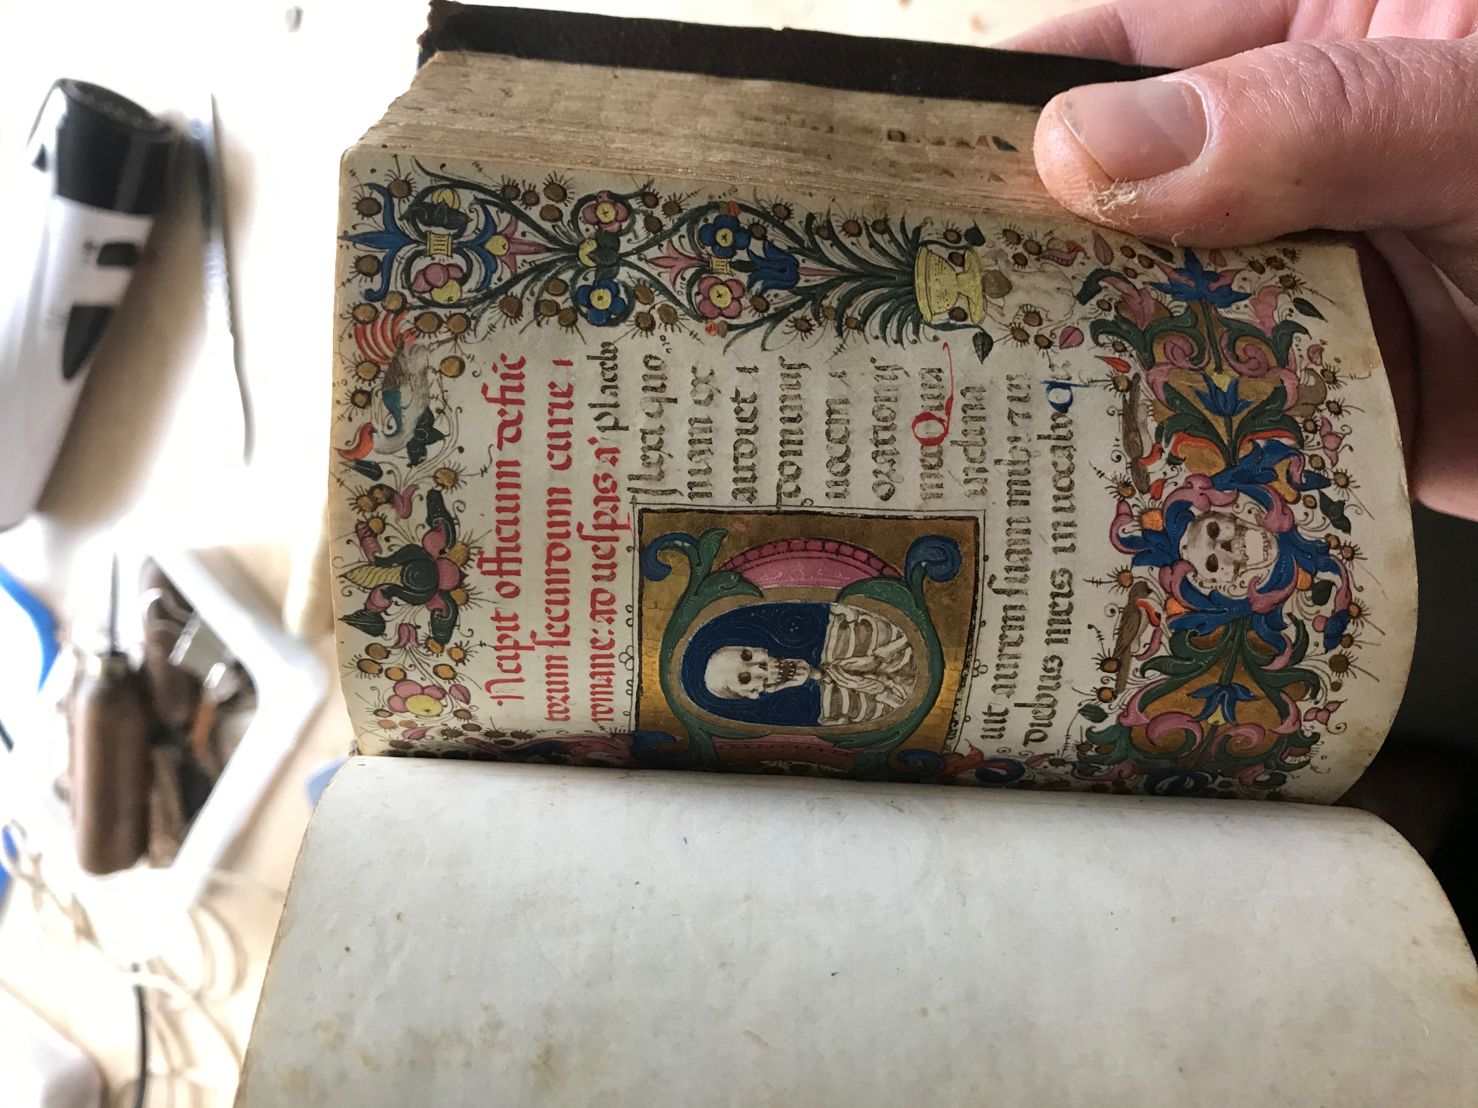 Ncipit officium defūc
torum secundum curie
romane: ad uespis a' placebo
ilexi quo
niam ex
audiet
dominus
uocem
orationis
mee Quia
inclina
uit aurem suam mihi: 7 in
diebus meis inuocabo